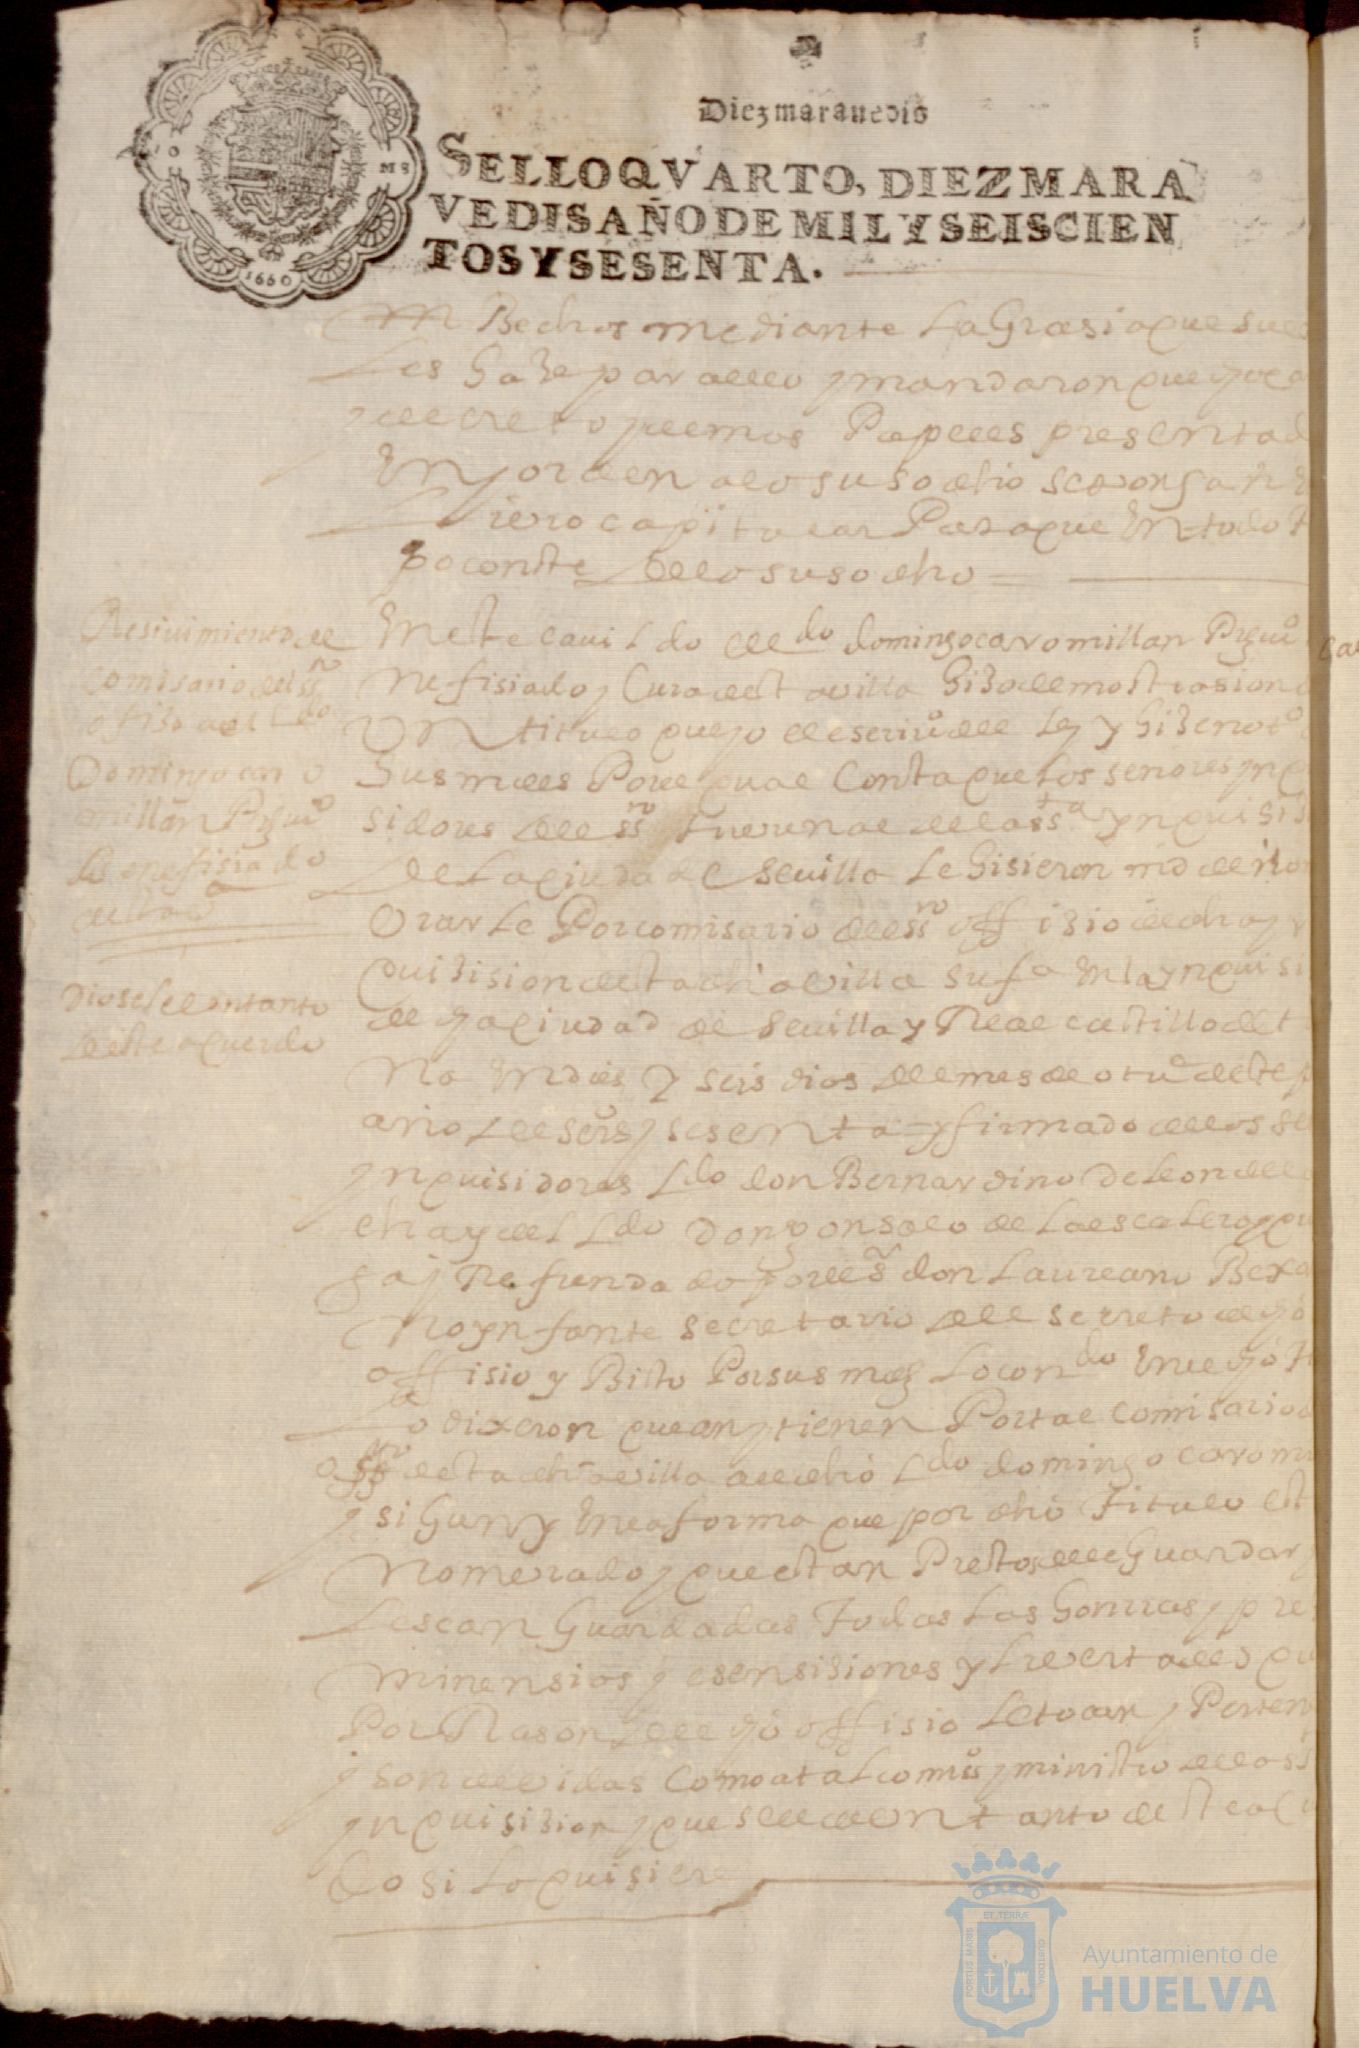 Diez marauedis
SELLO QVARTO, DIEZ MARA
VEDIS AÑO DE MIL Y SEISCIEN
TOS Y SESENTA.
10
MS
1660
mediante la Grasia que su
les haze para ello y mandaron que
decreto y demos Papeles presentad
En orden a lo susodho se pongan
capitular Para que En todo
po conste de lo susodho
Resiuimiento de
comisario del sto
ofisio al Ldo
Domingo caro
millan Presuo
Benefisiado
Diosele un tanto
deste acuerdo
En este cauildo el Ldo domingo caro millan Presuo
nefisiado y Cura desta villa hizo demostrasion
Un titulo que yo el escriuo de ley y hize noto
sus mdes Por el qual Consta que los señores ynq
sidores del sto triuunal de la sta ynquisi
de La ciudad de seuilla Le hisieron md de non
brarle Por comisario del sto offisio de dha yn
quisision desta dha villa su fa En la ynquisi
de la ciudad de seuilla y Real castillo de t
na En dies y seis dias del mes de otue deste p
año de seis y sesenta y firmado de los se
ynquisidores Ldo don Bernardino de leon de
cha y del Ldo don gonsalo de la escalera y qui
ga y Refrendado por el s don Laureano Bexa
no ynfante secretario del secreto de
offisio y Visto Por sus mdes Lo contdo En el
dixeron que an y tienen Por tal comisario
offo desta dha villa al dho Ldo domingo caro mi
y sigun y En la forma que por dho titulo est
nomerado y que estan Prestos de le Guardar y
Le sean Guardadas todas Las honrras y pre
minensias y esensisiones y liuertades qu
Por Rason del offisio Le tocan y Perten
y son deuidas Como a tal comiso y ministro de la s
ynquisision y que se le de Un tanto deste acu
do si Lo quisiere
PORTUS MARIS
ET TERRÆ
CUSTODIA
Ayuntamiento de
HUELVA